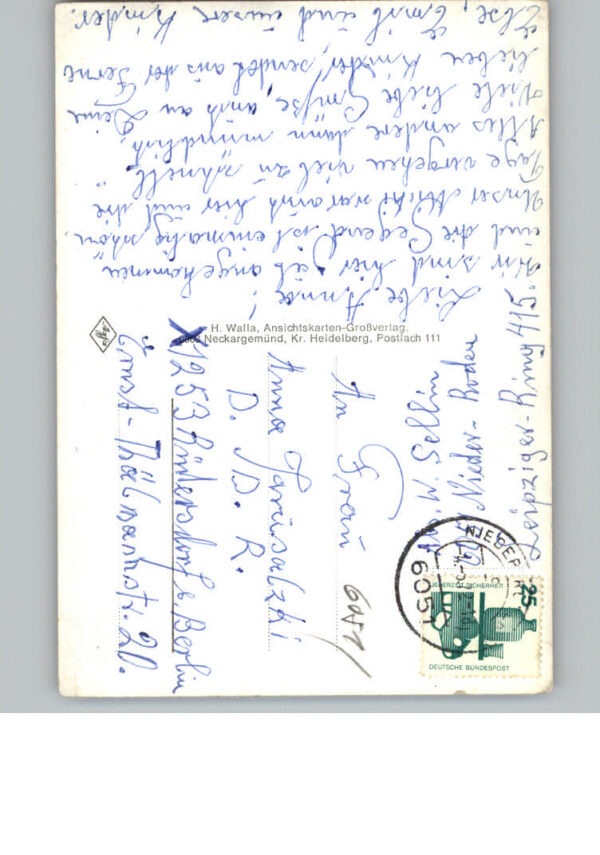 Liebe Anna!
Wir sind hier gut angekommen
und die Gegend ist einmalig schön,
Unser Michi war auch hier und die
Tage vergehen viel zu "schnell".
Alles andere dann mündlich,
Viele liebe Grüße, auch an Deine
lieben Kinder, sendet aus der Ferne
Else, Emil und unsere Kinder.
H. Walla, Ansichtskarten-Großverlag,
6903 Neckargemünd, Kr. Heidelberg, Postfach 111
Agfa
W. Sellin
Nieder-Roden
Leipziger-Ring 415.
An Frau
Anna
D. D. R.
X1253 Rüdersdorf b, Berlin
Ernst-Thälmannstr. 20.
6051
NIEDER-RO
6051
25
JEDERZEIT SICHERHEIT
DEUTSCHE BUNDESPOST